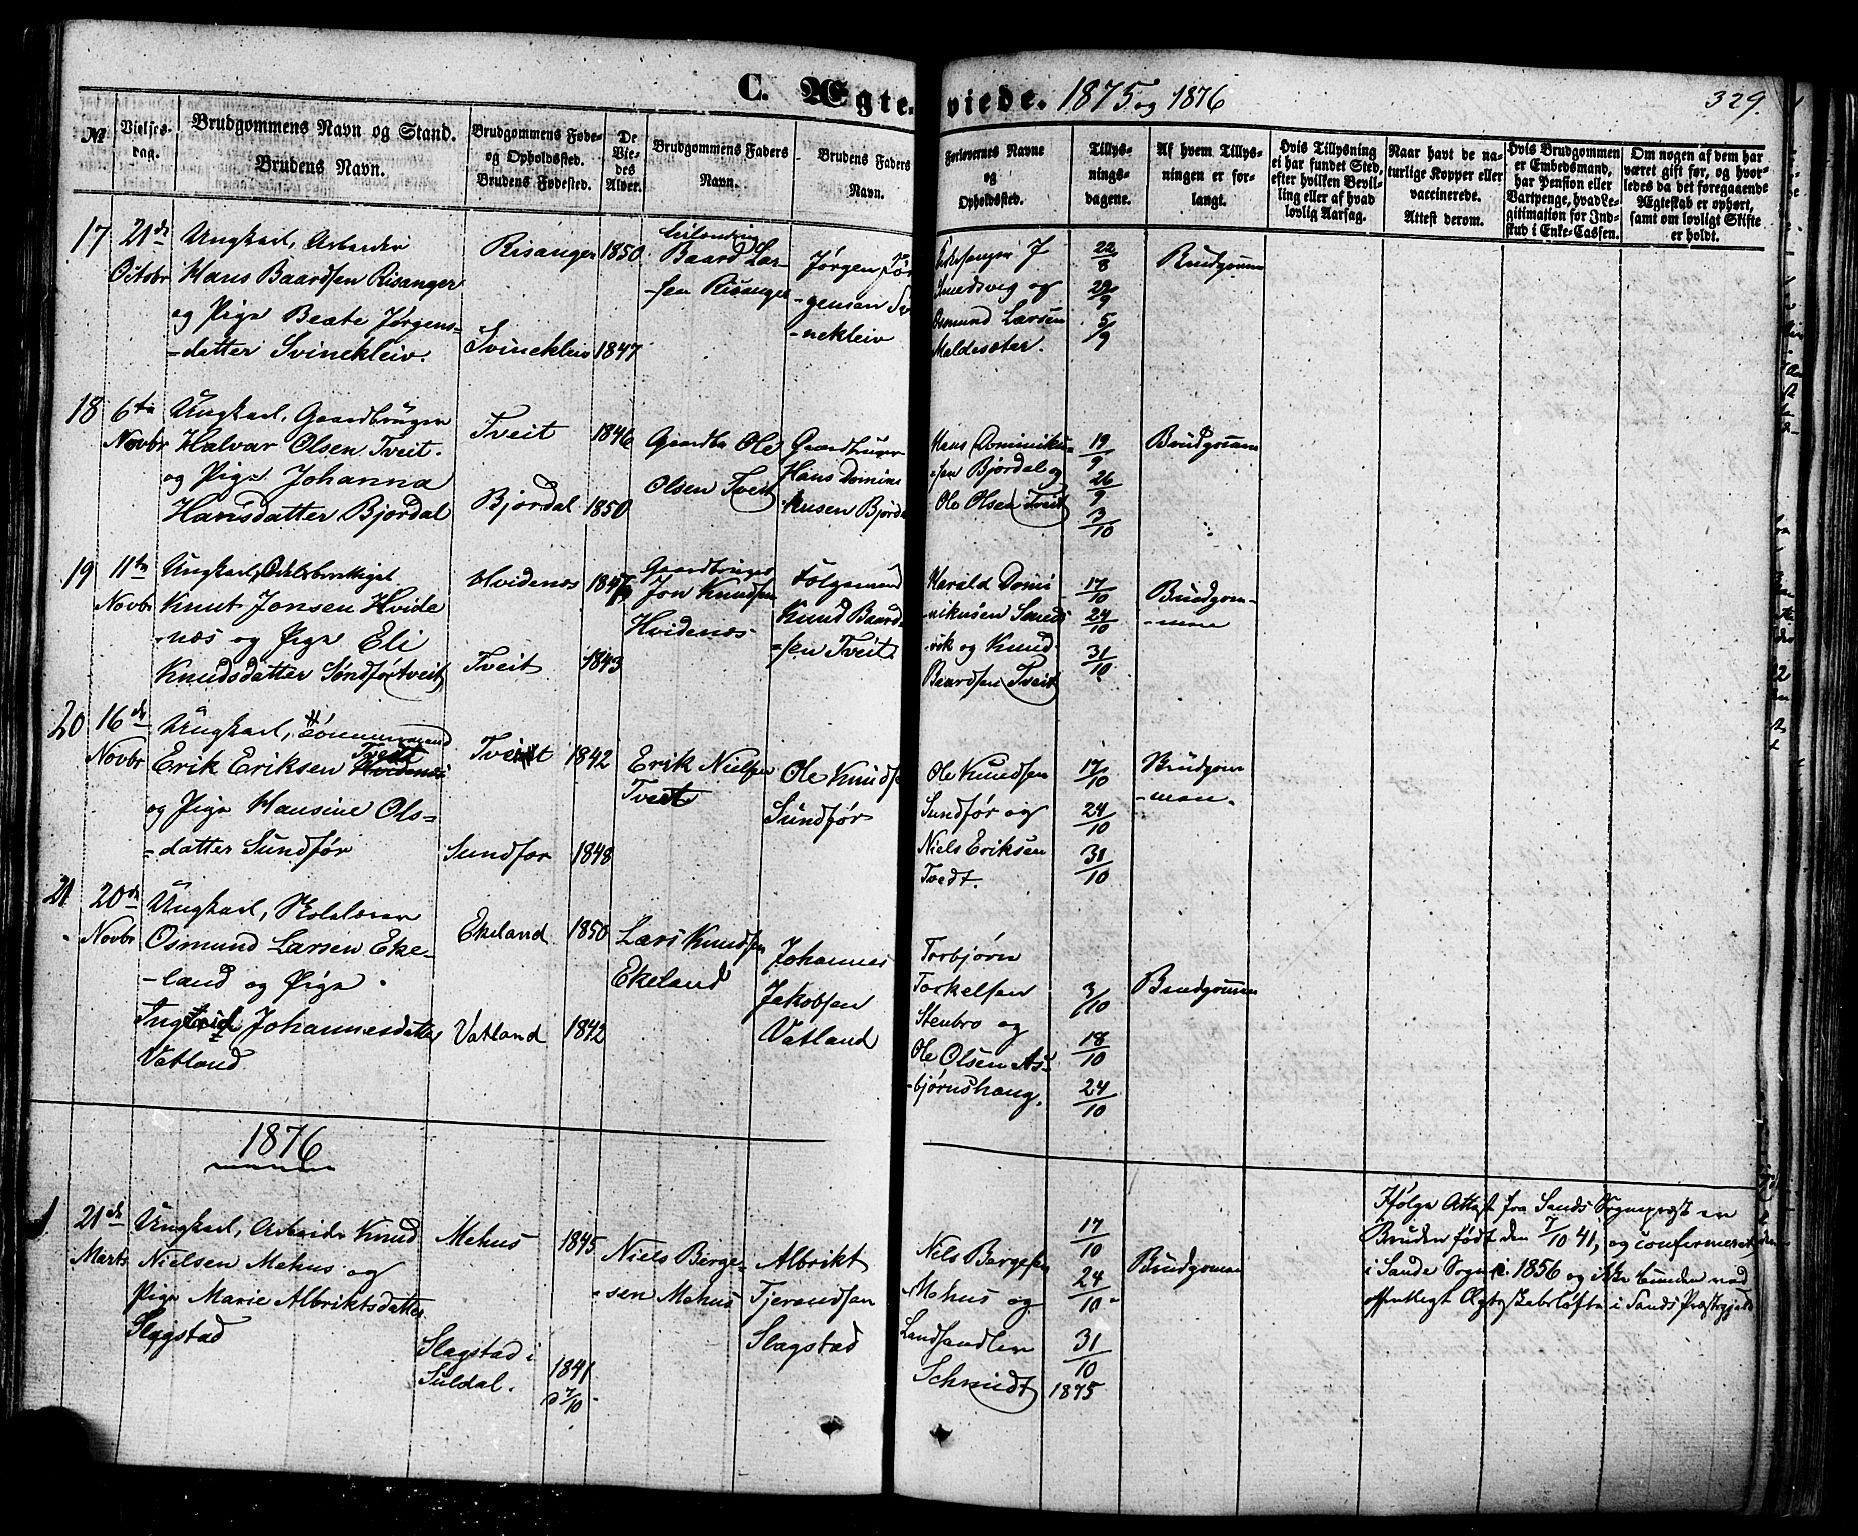 C. Ægteviede. 1875 og 1876
329.
№
Vielses-
dag.
Brudgommens Navn og Stand.
Brudens Navn.
Brudgommens Føde-
og Opholdssted.
Brudens Fødested.
De
Vie-
des
Alder.
Brudgommens Faders
Navn.
Brudens Faders
Navn.
Forlovernes Navne
og
Opholdssted.
Tillys-
nings-
dagene.
Af hvem Tillys-
ningen er for-
langt.
Hvis Tillysning
ei har fundet Sted,
efter hvilken Bevil-
ling eller af hvad
lovlig Aarsag.
Naar havt de na-
turlige Kopper eller
vaccinerede.
Attest derom.
Hvis Brudgommen
er Embedsmand,
har Pension eller
Vartpenge, hvad Le-
gitimation for Ind-
skud i Enke-Cassen.
Om nogen af dem har
været gift før, og hvor-
ledes da det foregaaende
Ægteskab er ophørt,
samt om lovligt Skifte
er holdt.
17
21de
Octobr
Ungkarl, Arbeider
Hans Baardsen Risanger
og Pige Beate Jørgens-
-datter Svinekleiv.
Risanger 1850
Svinekleiv 1847
Baard Lar-
-sen Risanger
Jørgen Jør
-gensen Svi
-nekleiv
Kirkesanger J
Smedsvig og
Osmund Larsen
Maldesæter.
22/8
29/9
5/9
Brudgom
18
6te
Novbr
Ungkarl, Gaardbruger
Halvar Olsen Tveit.
og Pige Johanna
Hansdatter Bjordal
Tveit 1846
Bjordal 1850
Gaardbr Ole
Olsen Tveit
Gaardbruger
Hans Domini
kusen Bjorda
Hans Dominiku-
-sen Bjordal og
Ole Olsen Tveit
19/9
26/9
3/10
Brudgom
19
11te
Novbr
Ungkarl,
Knut Jonsen Hvide
-næs og Pige Eli
Knudsdatter Søndførtveit
Hvidenæs
Tveit 1843
Gaardbruger
Jon Knudsen
Hvidenæs
Følgemand
Knud Baard
-sen Tveit
Harald Domi
nikusen Sands
-vik og Knud
Baardsen Tveit
17/10
24/10
31/10
Brudgom-
-men
20
16de
Novbr
Ungkarl, Tømmermand
Tvedt
Erik Eriksen Hvidenæs
og Pige Hansine Ols-
-datter Sundfør
Tveit 1842
Sundfør 1848
Erik Nielsen
Tveit
Ole Knuds
Sundfør
Ole Knudsen
Sundfør og
Niels Eriksen
Tvedt.
17/10
24/10
31/10
Brudgom
-men
21
20de
Novbr
Ungkarl, Skolelærer
Osmund Larsen Eke-
-land og Pige
Ingerid Johannesdatter
Vatland
Ekeland 1850
Vatland 1842
Lars Knudsen
Ekeland
Johannes
Jakobsen
Vatland
Torbjørn
Torkelsen
Stenbro og
Ole Olsen As-
-bjørnshaug.
3/10
18/10
24/10
Brudgommen
1876
1
21de
Marts
Ungkarl, Arbeider Knud
Nielsen Mehus og
Pige Marie Albriktsdatter
Slagstad
Mehus 1845
Slagstad i
Suldal.
1841
d 7/10
Niels Birge-
-sen Mehus
Albrikt
Tjerandsen
Slagstad
Nils Bergesen
Mehus og
Landhandler
Schmidt
17/10
24/10
31/10
1875
Brudgommen
Ifølge Attest fra Sands Sognepræst er
Bruden født den 7/10 41, og confirmeret
i Sande Sogn 1856 og ikke bunden ved
offentligt Ægteskabsløfte i Sands Præstegjeld